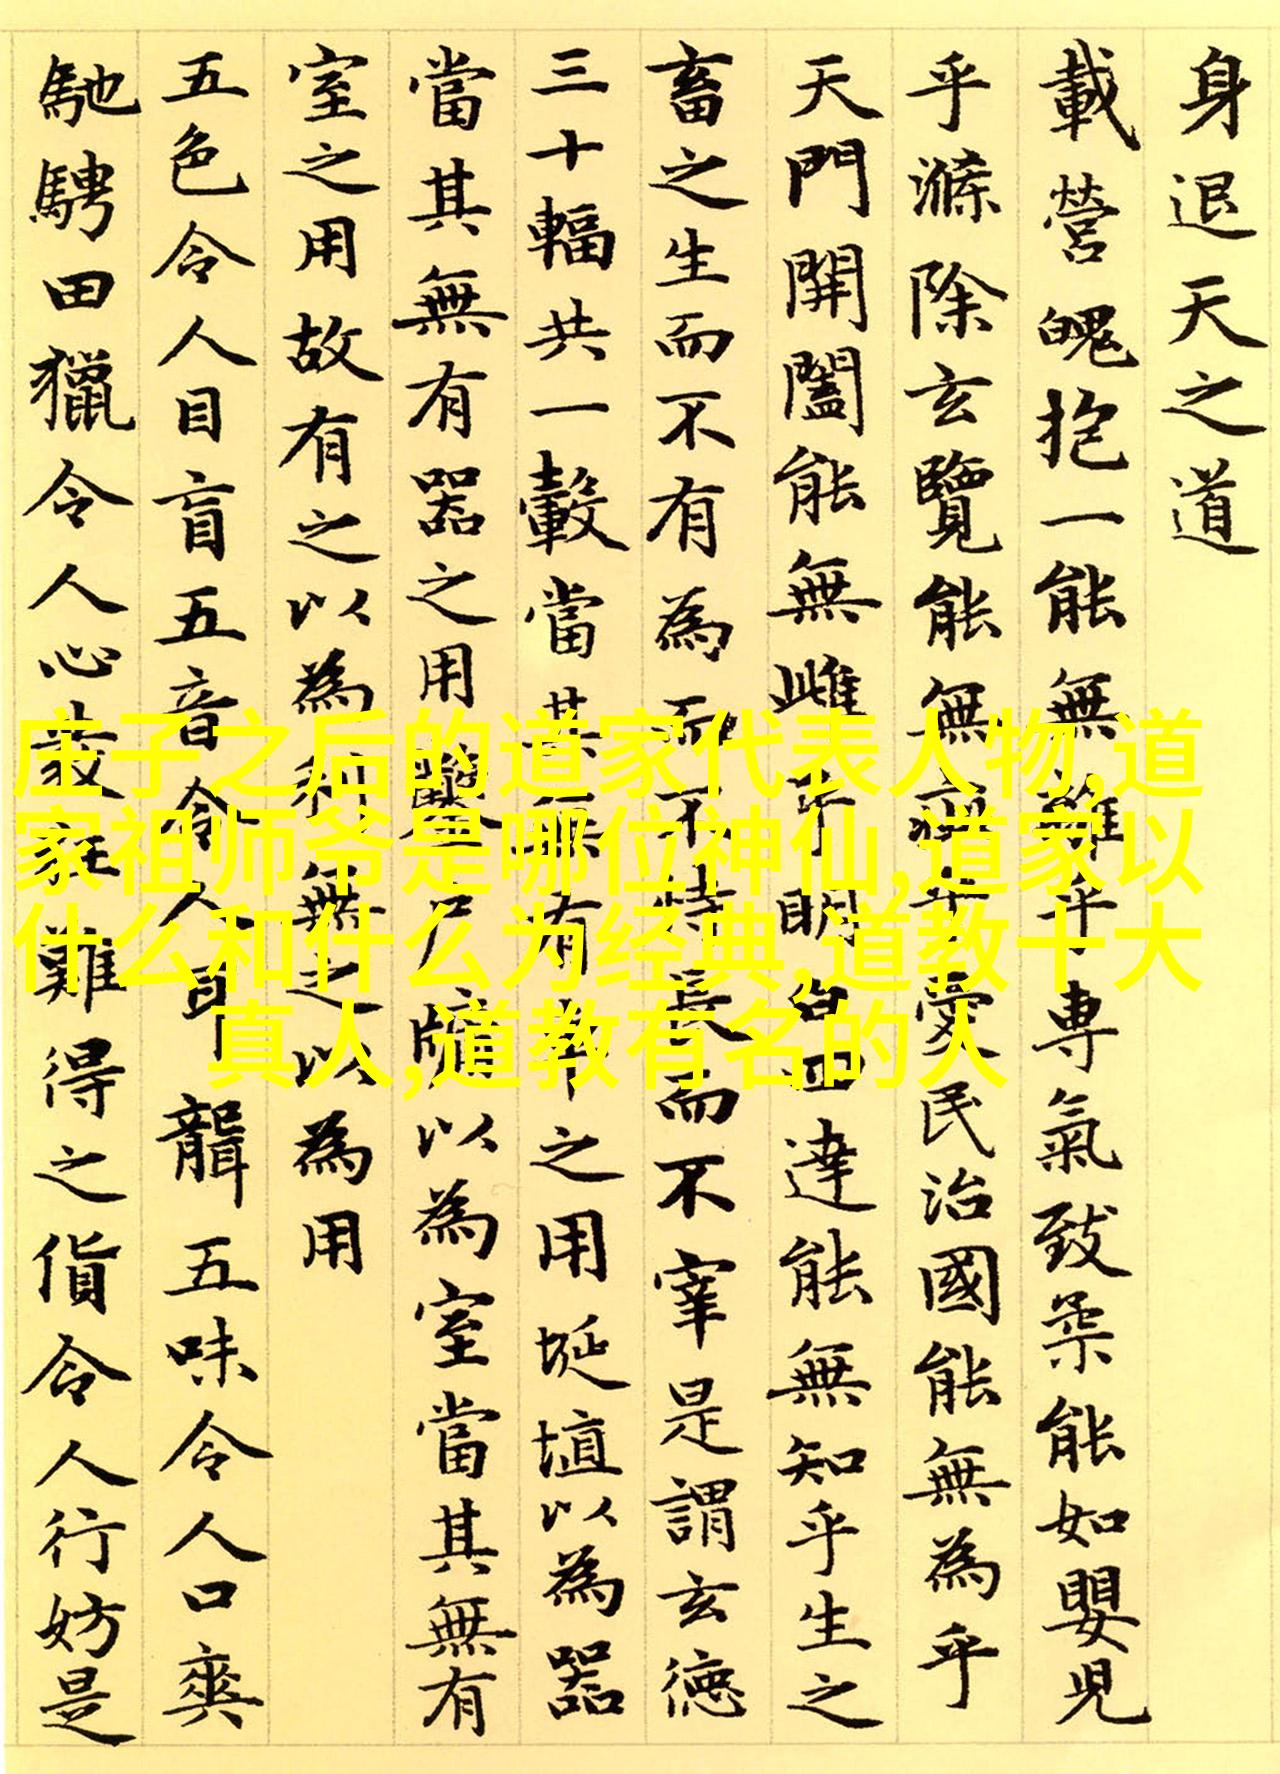 身退天之道
載營魄抱一能無離乎専氣致柔能如嬰兒
乎滌除玄覽能無疵乎愛民治國能無為乎
天門開闔能無雌乎明白四達能無知乎生之
畜之生而不有為而不恃長而不宰是謂玄德
三十輻共一轂當其無有車之用埏埴以為器
當其無有器之用鑿戶牖以為室當其無有
室之用故有之以為利無之以為用
五色令人目盲五音令人耳聾五味令人口爽
馳騁田獵令人心發狂難得之貨令人行妨是
庄子之后的道家代表人物,道
家祖师爷是哪位神仙,道家以
什么和什么为经典,道教十大
真人,道教有名的人